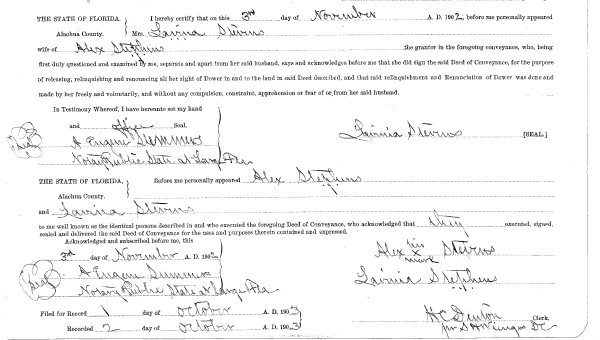 THE STATE OF FLORIDA, I hereby certify that on this 3rd day of November A. D. 1902 before me personally appeared
Alachua County. Mrs. Lavina Stevens
wife of Alex Stephens the grantor in the foregoing conveyance, who, being
first duly questioned and examined by me, separate and apart from her said husband, says and acknowledges before me that she did sign the said Deed of Conveyance, for the purpose
of releasing, relinquishing and renouncing all her right of Dower in and to the land in said Deed described, and that said relinquishment and Renunciation of Dower was done and
made by her freely and voluntarily, and without any compulsion, constraint, apprehension or fear of or from her said husband.
In Testimony Whereof, I have hereunto set my hand
and office Seal. Lavinia Stevens [SEAL]
Seal A Eugene Summers
Notary Public State at Large Fla
THE STATE OF FLORIDA, Before me personally appeared Alex Stephens
Alachua County.
and Lavina Stevens
to me well known as the identical persons described in and who executed the foregoing Deed of Conveyance, who acknowledged that they executed, signed,
sealed and delivered the said Deed of Conveyance for the uses and purposes therein contained and expressed.
Acknowledged and subscribed before me, this
3rd day of November A. D. 190
Alex his x mark Stevens
Seal A Eugene Summers
Lavinia Stephens
Notary Public State at Large Fla
Filed for Record 1 day of October A. D. 1903
H C Denton Clerk,
Recorded 2 day of October A. D. 1903
D C